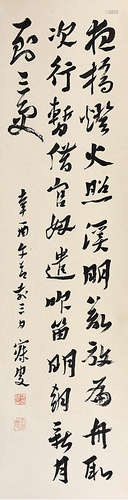 夜橋燈火照溪明欲放扁舟取
次行暫借官奴遣吹笛明朝新月
到三更
辛酉午前三日 寐叟